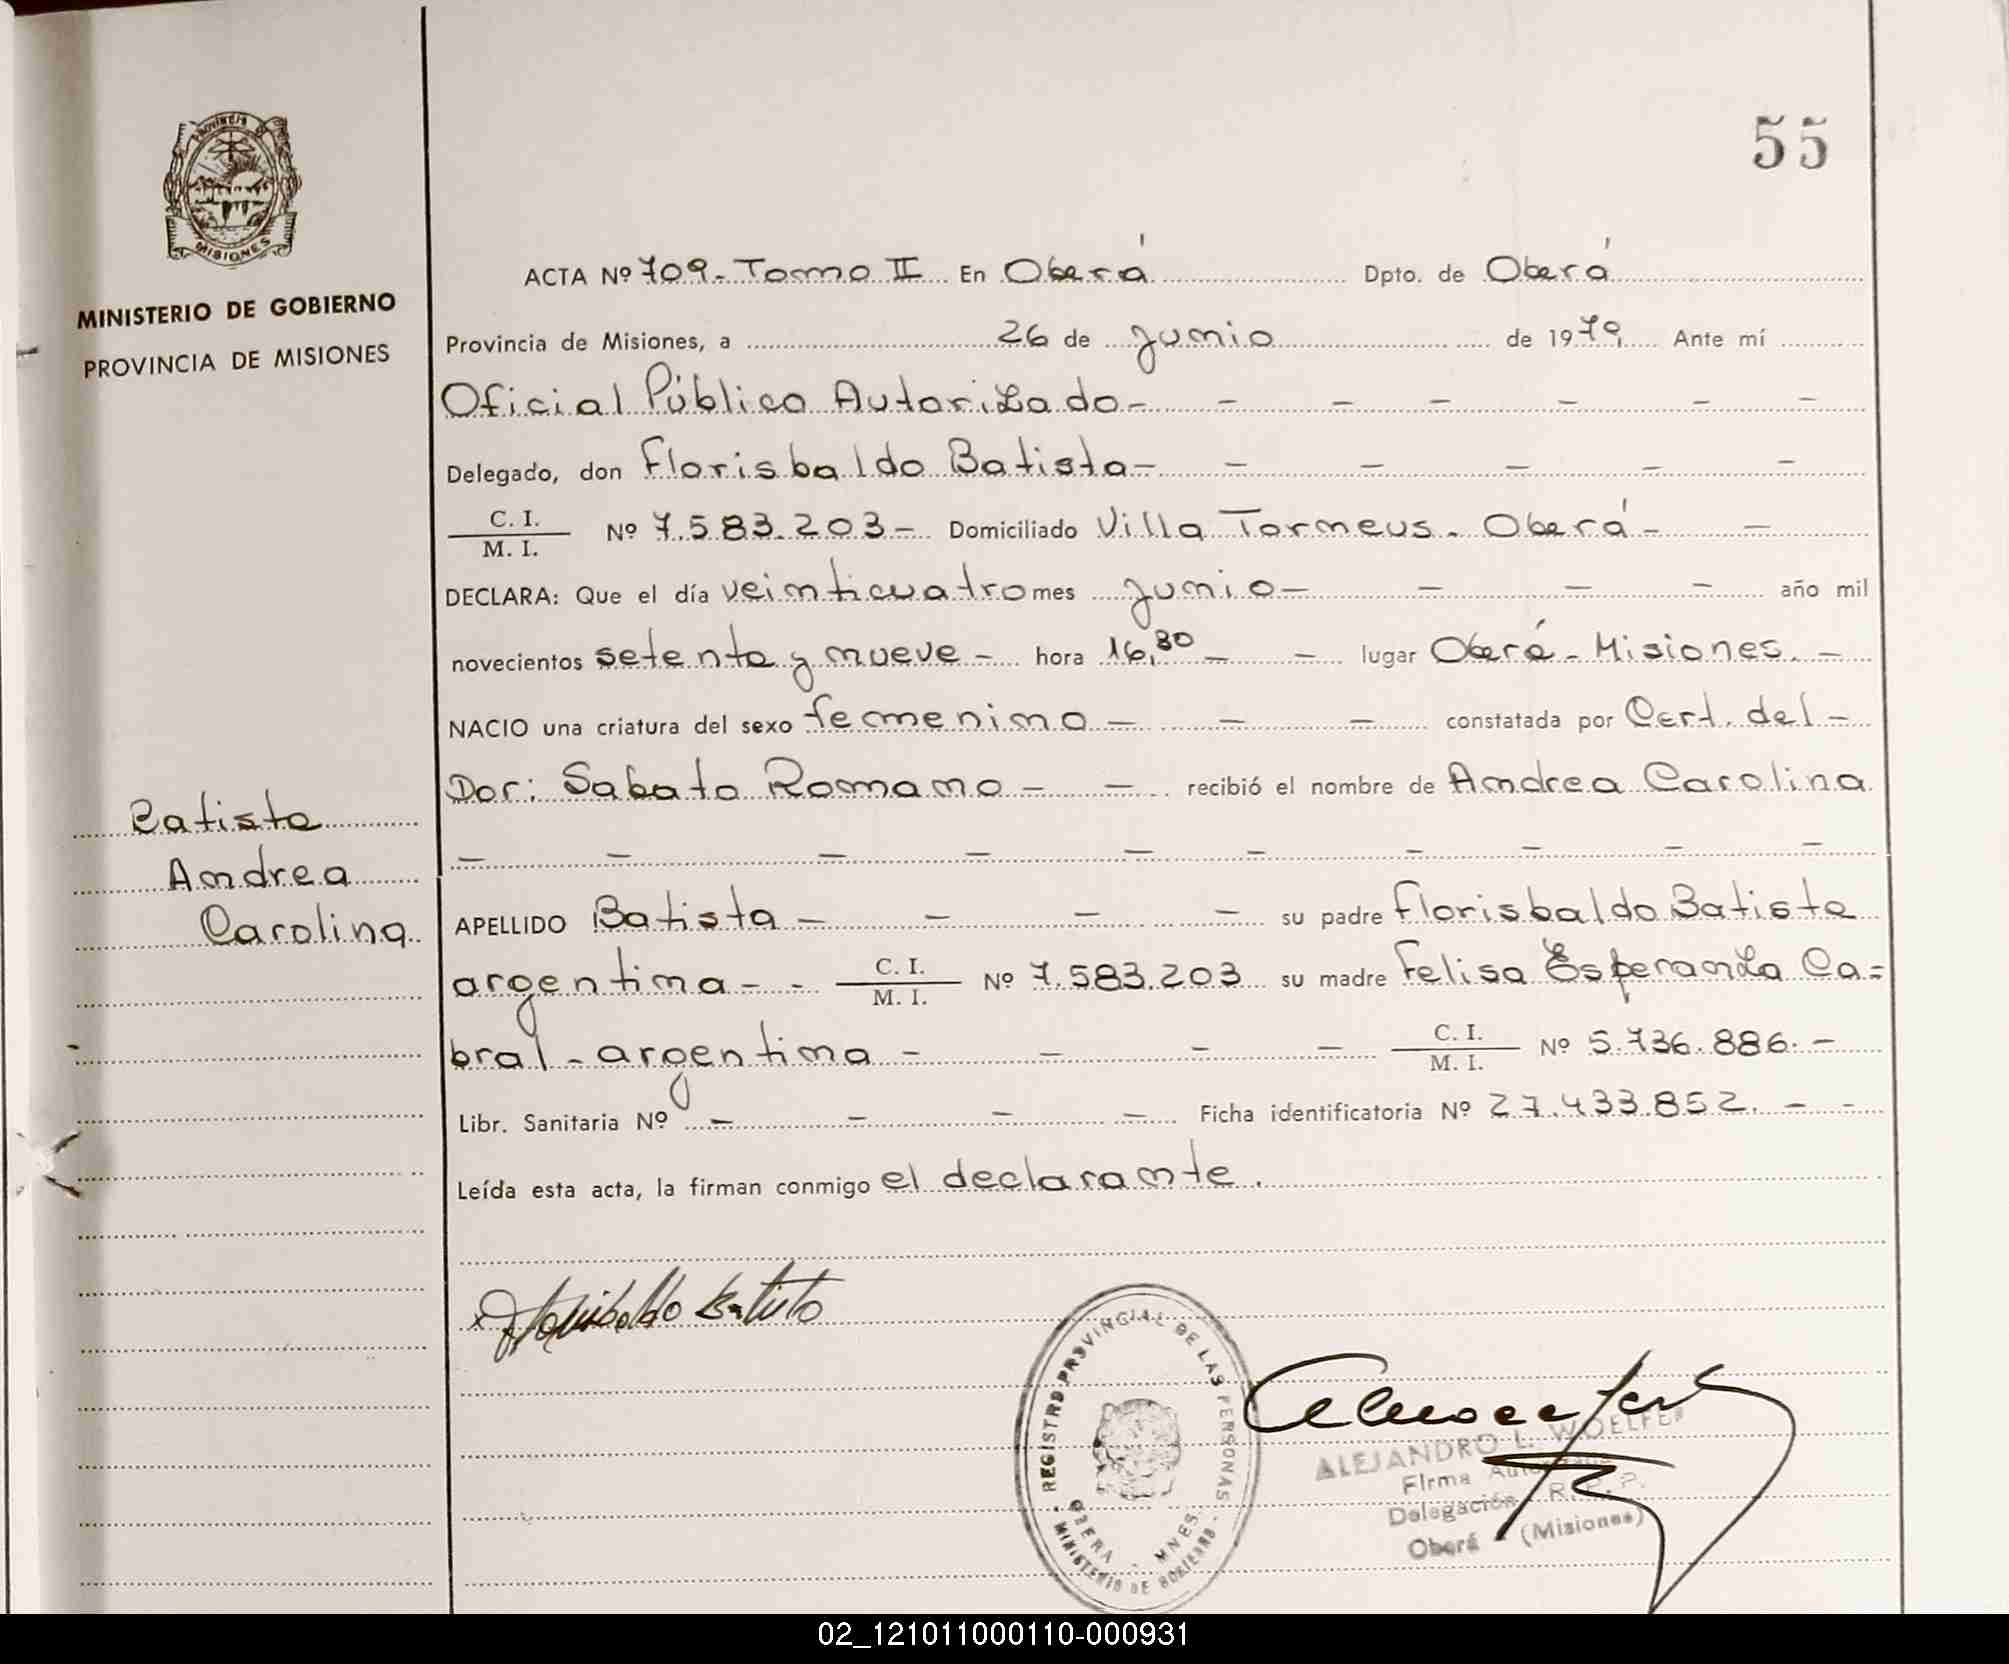 55
PROVINCIA
MISIONES
MINISTERIO DE GOBIERNO
PROVINCIA DE MISIONES
Batista
Andrea
Carolina
ACTA Nº 709.- Tomo II En Oberá Dpto. de Oberá
Provincia de Misiones, a 26 de Junio de 1979, Ante mí
Oficial Público Autorizado - - - - - - -
Delegado, don Florisbaldo Batista - - - - - -
C. I. / M. I. Nº 7.583.203 - Domiciliado Villa Tormeus. Oberá - -
DECLARA: Que el día veinticuatro mes Junio - - - - año mil
novecientos setenta y nueve - hora 16,30 - - lugar Oberá - Misiones. -
NACIO una criatura del sexo femenino - - - constatada por Cert. del -
Dor: Sabato Romano - - recibió el nombre de Andrea Carolina
- - - - - - - - - -
APELLIDO Batista - - - - su padre Florisbaldo Batista
argentina - - C. I. / M. I. Nº 7.583.203 su madre Felisa Esperanza Ca=
bral - argentina - - - - C. I. / M. I. Nº 5.736.886. -
Libr. Sanitaria Nº - - - - Ficha identificatoria Nº 27.433.852. - -
Leída esta acta, la firman conmigo el declarante.
Florisbaldo Batista
REGISTRO PROVINCIAL DE LAS PERSONAS
OBERA - MNES.
- MINISTERIO DE GOBIERNO -
ALEJANDRO L. WOELFER
Firma Autorizada
Delegación R. P. P.
Oberá (Misiones)
02_121011000110-000931